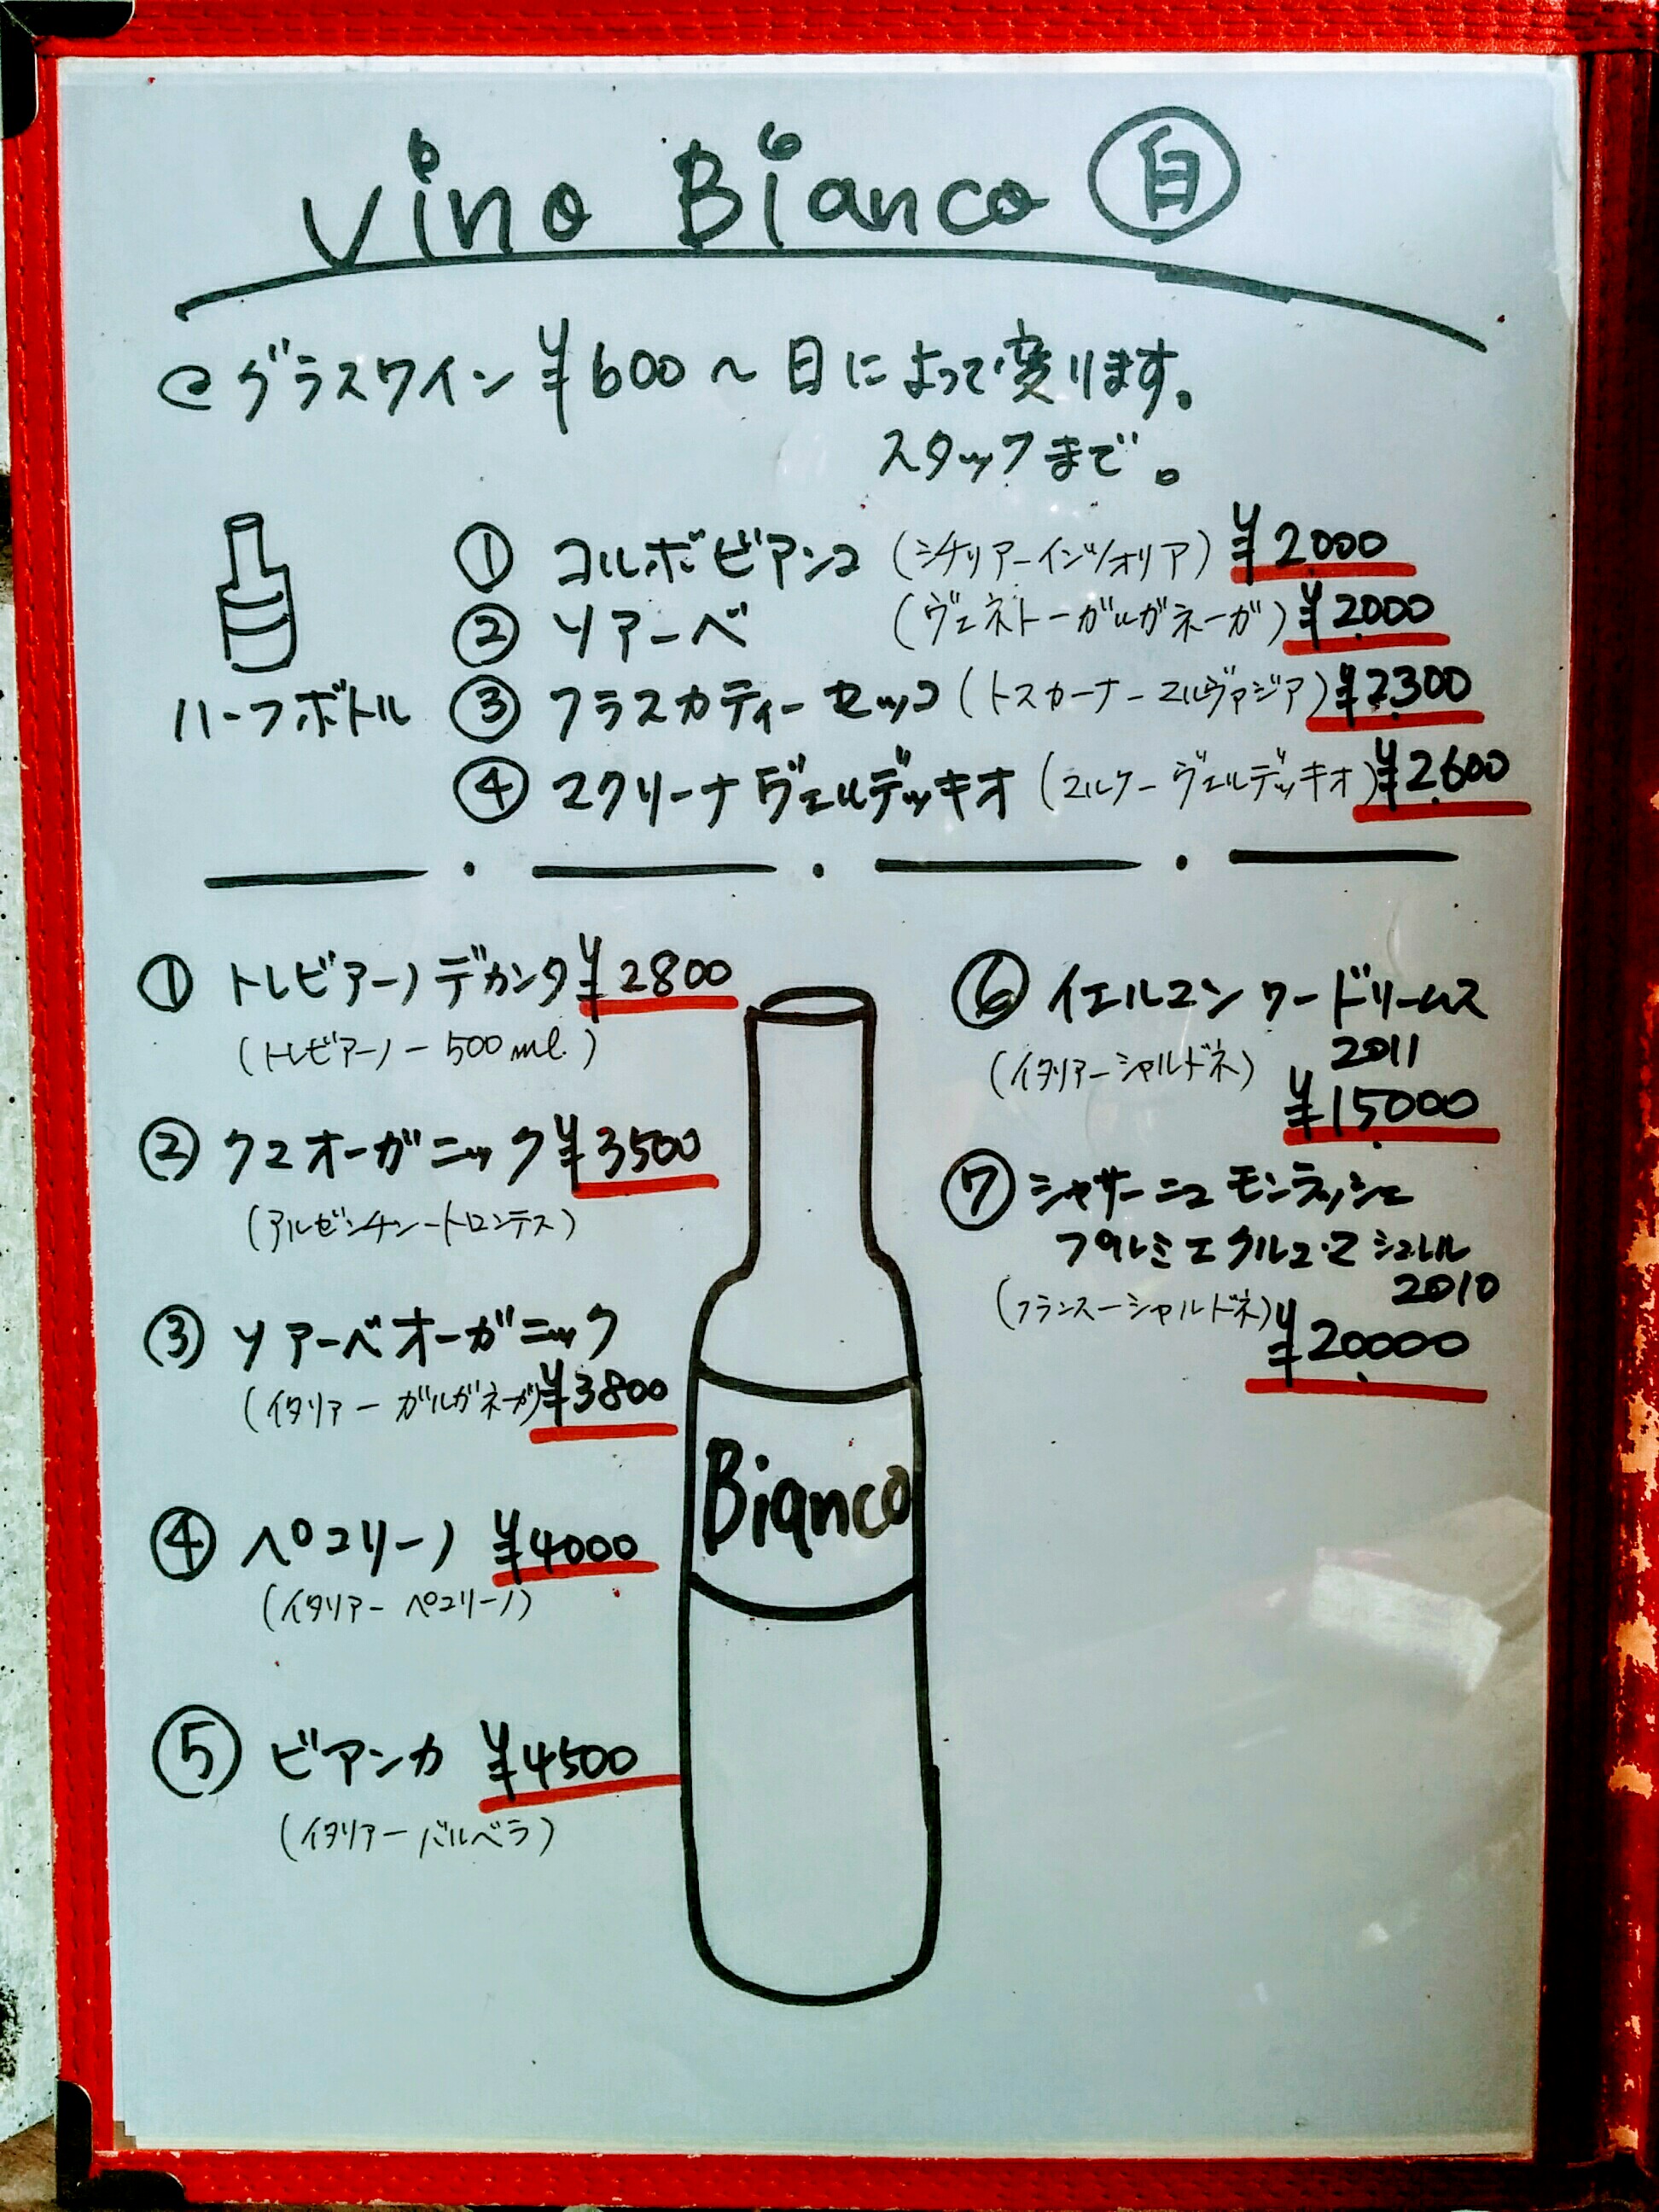 Vino Bianco 白
グラスワイン ¥600〜日によって変ります。
スタッフまで。
ハーフボトル
① コルボビアンコ (シチリアーインツォリア) ¥2000
② ソアーベ (ヴェネトーガルガネーガ) ¥2000
③ フラスカティーセッコ (トスカーナーマルヴァジア) ¥2,300
④ マクリーナ ヴェルデッキオ (マルケーヴェルデッキオ) ¥2,600
① トレビアーノ デカンタ ¥2800
(トレビアーノー500ml)
② クマオーガニック ¥3500
(アルゼンチンートロンテス)
③ ソアーベオーガニック
(イタリアーガルガネーガ) ¥3800
④ ペコリーノ ¥4000
(イタリアーペコリーノ)
⑤ ビアンカ ¥4500
(イタリアーバルベラ)
Bianco
⑥ イエルマン ワードリームス
2011
(イタリアーシャルドネ)
¥15,000
⑦ シャサーニュ モンラッシェ
プルミエ クルュ・マシュレル
2010
(フランスーシャルドネ)
¥20,000